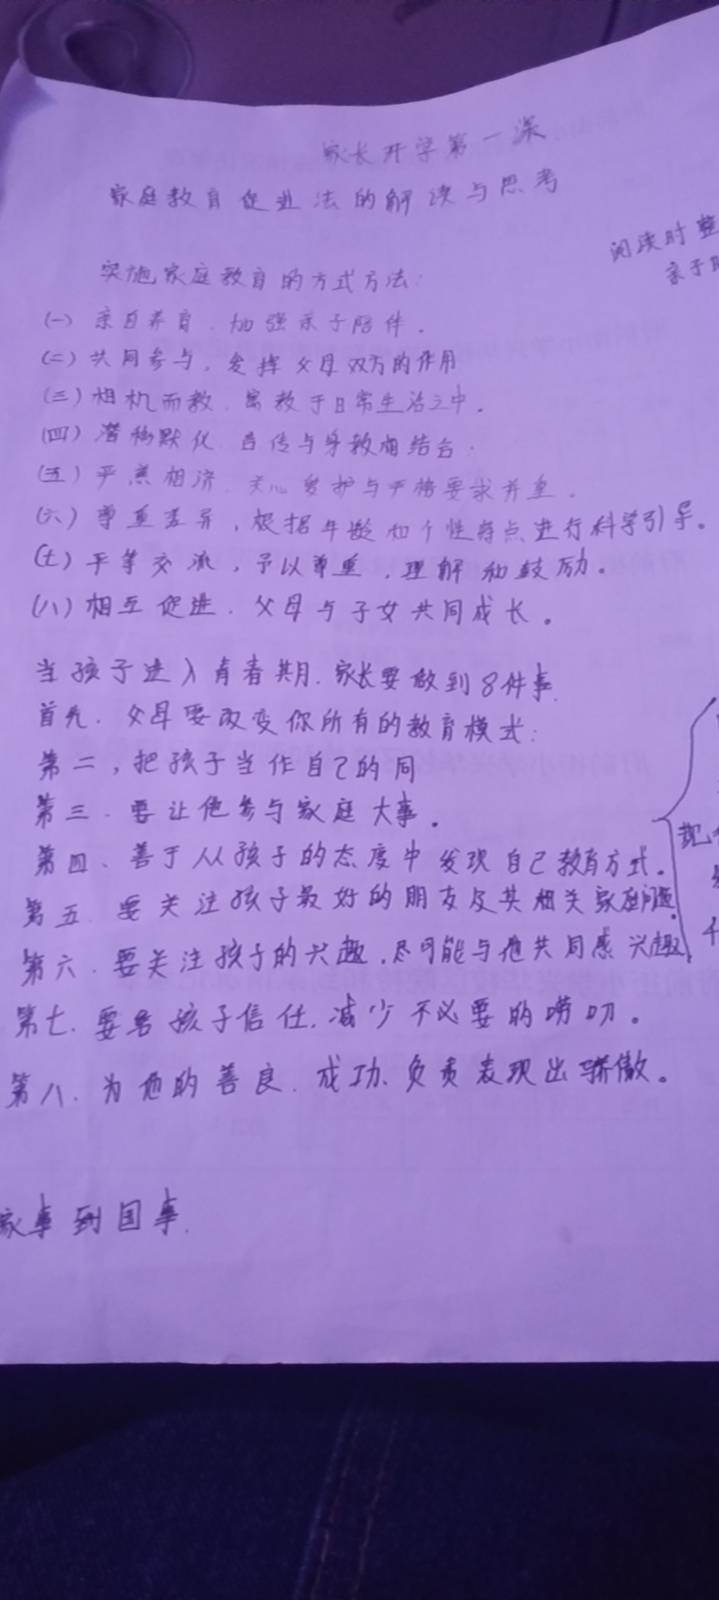 家长开学第一课
家庭教育促进法的解读与思考
阅读时整
亲子
实施家庭教育的方式方法：
(一) 亲自养育，加强亲子陪伴。
(二) 共同参与，发挥父母双方的作用
(三) 相机而教，寓教于日常生活之中。
(四) 潜移默化，言传与身教相结合.
(五) 严慈相济，关心爱护与严格要求并重。
(六) 尊重差异，根据年龄和个性特点进行科学引导。
(七) 平等交流，予以尊重，理解和鼓励。
(八) 相互促进，父母与子女共同成长。
当孩子进入青春期，家长要做到8件事.
首先，父母要改变你所有的教育模式：
第二，把孩子当作自己的同
第三，要让他参与家庭大事。
第四、善于从孩子的态度中发现自己教育方式。
第五 要关注孩子最好的朋友及其相关家庭问题.
第六、要关注孩子的兴趣，尽可能与他共同感兴趣.
第七、要给孩子信任，减少不必要的唠叨。
第八、为他的善良、成功、负责表现出骄傲。
把
家事到国事.